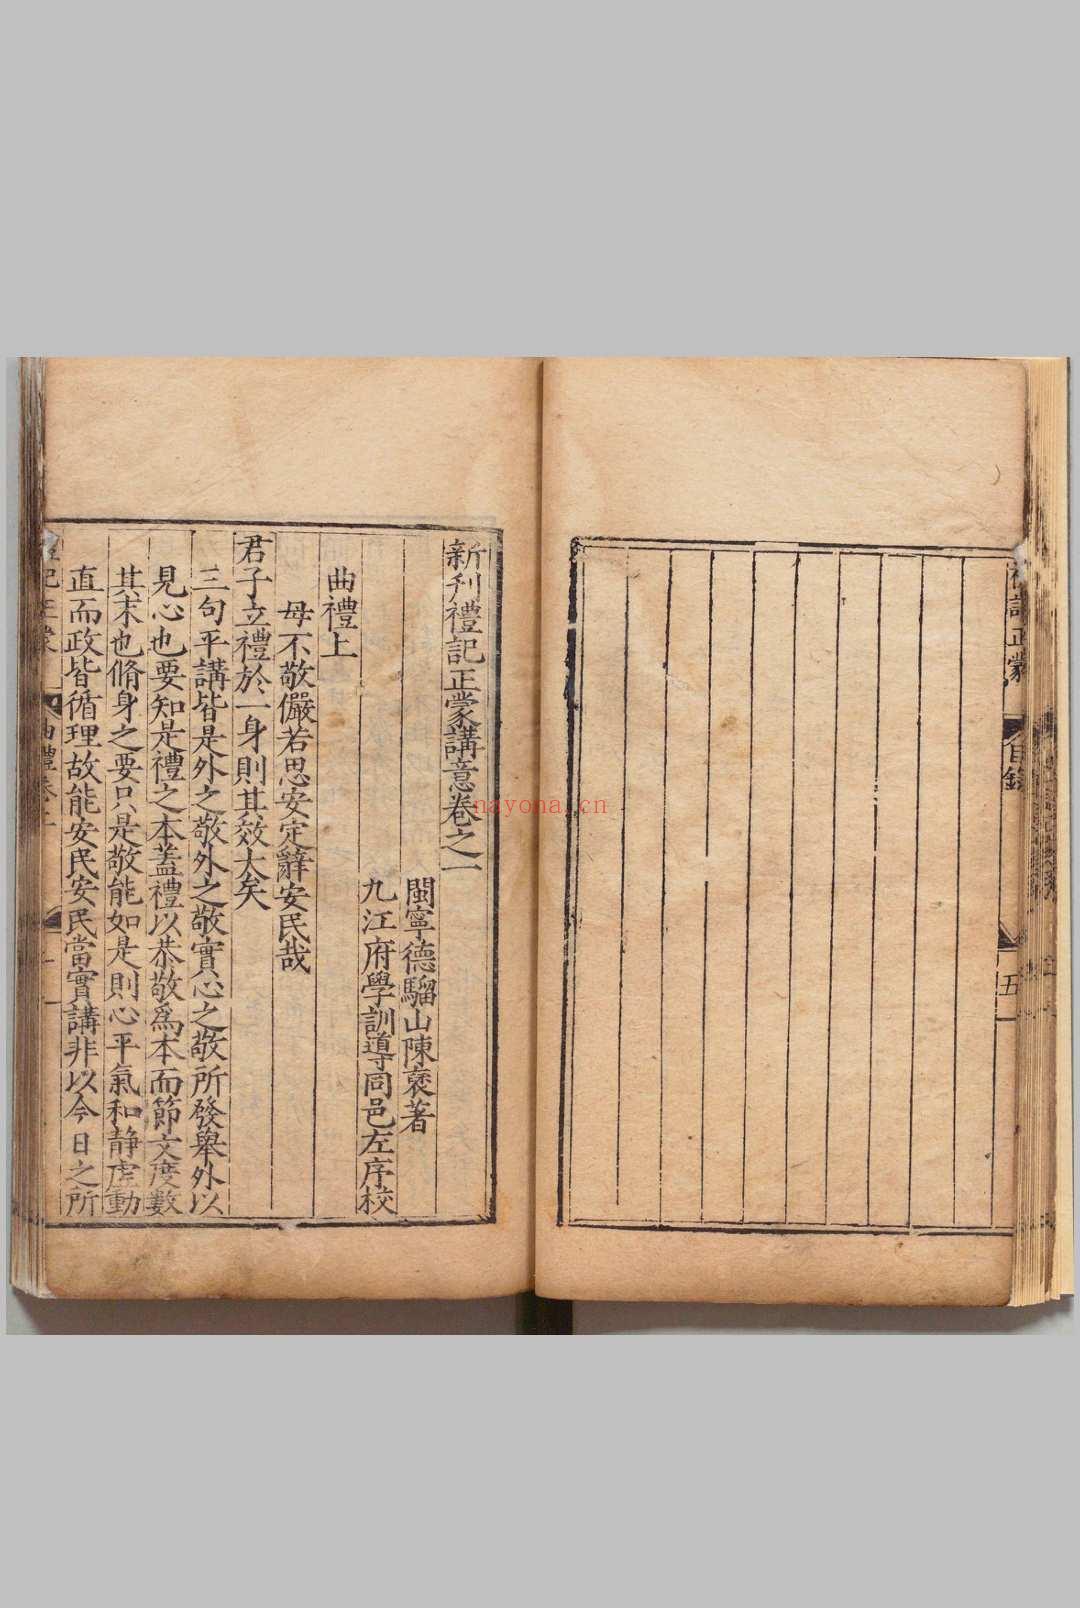 禮記正蒙
目錄
五
新刊禮記正蒙講意卷之一
閩寧德騮山陳褎著
九江府學訓導同邑左序校
曲禮上
毋不敬儼若思安定辭安民哉
君子立禮於一身則其效大矣
三句平講皆是外之敬外之敬實心之敬所發舉外以
見心也要知是禮之本蓋禮以恭敬爲本而節文度數
其末也脩身之要只是敬能如是則心平氣和靜虛動
直而政皆循理故能安民安民當實講非以今日之所
nayona.cn